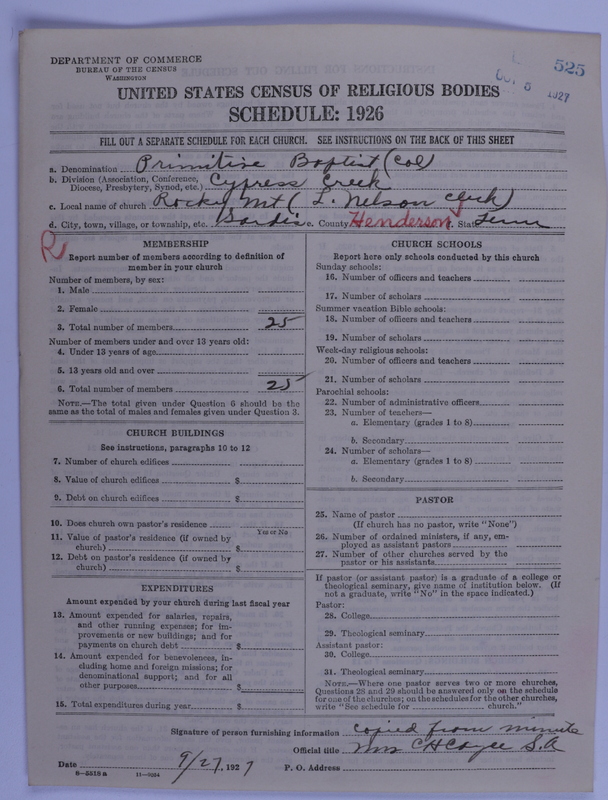 DEPARTMENT OF COMMERCE
BUREAU OF THE CENSUS
WASHINGTON
525
1927
UNITED STATES CENSUS OF RELIGIOUS BODIES
SCHEDULE: 1926
FILL OUT A SEPARATE SCHEDULE FOR EACH CHURCH. SEE INSTRUCTIONS ON THE BACK OF THIS SHEET
a. Denomination Primitive Baptist (Col)
b. Division (Association, Conference, Diocese, Presbytery, Synod, etc.) Cypress Creek
c. Local name of church Rocky Mt ( L. Nelson Clerk)
d. City, town, village, or township, etc. Sardis e. County Henderson f. State Tenn
R
MEMBERSHIP
Report number of members according to definition of
member in your church
Number of members, by sex:
1. Male
2. Female
3. Total number of members 25
Number of members under and over 13 years old:
4. Under 13 years of age
5. 13 years old and over
6. Total number of members 25
NOTE.—The total given under Question 6 should be the
same as the total of males and females given under Question 3.
CHURCH BUILDINGS
See instructions, paragraphs 10 to 12
7. Number of church edifices
8. Value of church edifices $
9. Debt on church edifices $
10. Does church own pastor's residence
Yes or No
11. Value of pastor's residence (if owned by
church) $
12. Debt on pastor's residence (if owned by
church) $
EXPENDITURES
Amount expended by your church during last fiscal year
13. Amount expended for salaries, repairs,
and other running expenses; for im-
provements or new buildings; and for
payments on church debt $
14. Amount expended for benevolences, in-
cluding home and foreign missions; for
denominational support; and for all
other purposes $
15. Total expenditures during year $
CHURCH SCHOOLS
Report here only schools conducted by this church
Sunday schools:
16. Number of officers and teachers
17. Number of scholars
Summer vacation Bible schools:
18. Number of officers and teachers
19. Number of scholars
Week-day religious schools:
20. Number of officers and teachers
21. Number of scholars
Parochial schools:
22. Number of administrative officers
23. Number of teachers—
a. Elementary (grades 1 to 8)
b. Secondary
24. Number of scholars—
a. Elementary (grades 1 to 8)
b. Secondary
PASTOR
25. Name of pastor
(If church has no pastor, write "None")
26. Number of ordained ministers, if any, em-
ployed as assistant pastors
27. Number of other churches served by the
pastor or his assistants
If pastor (or assistant pastor) is a graduate of a college or
theological seminary, give name of institution below. (If
not a graduate, write "No" in the space indicated.)
Pastor:
28. College
29. Theological seminary
Assistant pastor:
30. College
31. Theological seminary
NOTE.—Where one pastor serves two or more churches,
Questions 28 and 29 should be answered only on the schedule
for one of the churches; on the schedules for the other churches,
write "See schedule for church."
Signature of person furnishing information copied from minute
Official title Mrs C H Cayce S.A
Date 9/27, 1927 P. O. Address
8—5518 a 11—9334